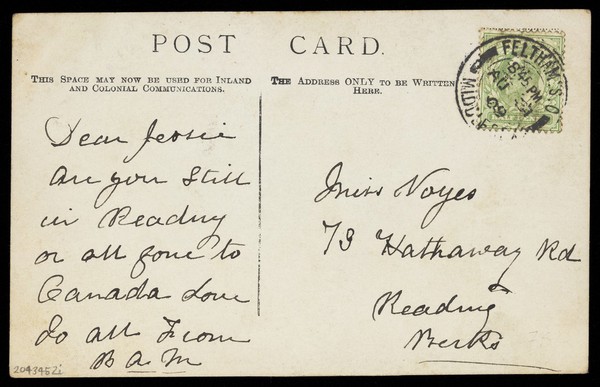 POST CARD.
THIS SPACE MAY NOW BE USED FOR INLAND
AND COLONIAL COMMUNICATIONS.
Dear Jessie
Are you still
in Reading
or all gone to
Canada Love
to all From
B A M
2043452i
THE ADDRESS ONLY TO BE WRITTEN
HERE.
Miss Noyes
79 Hathaway Rd
Reading
Berks
FELTHAM S.O.
MIDDLESEX
PM
AU
09